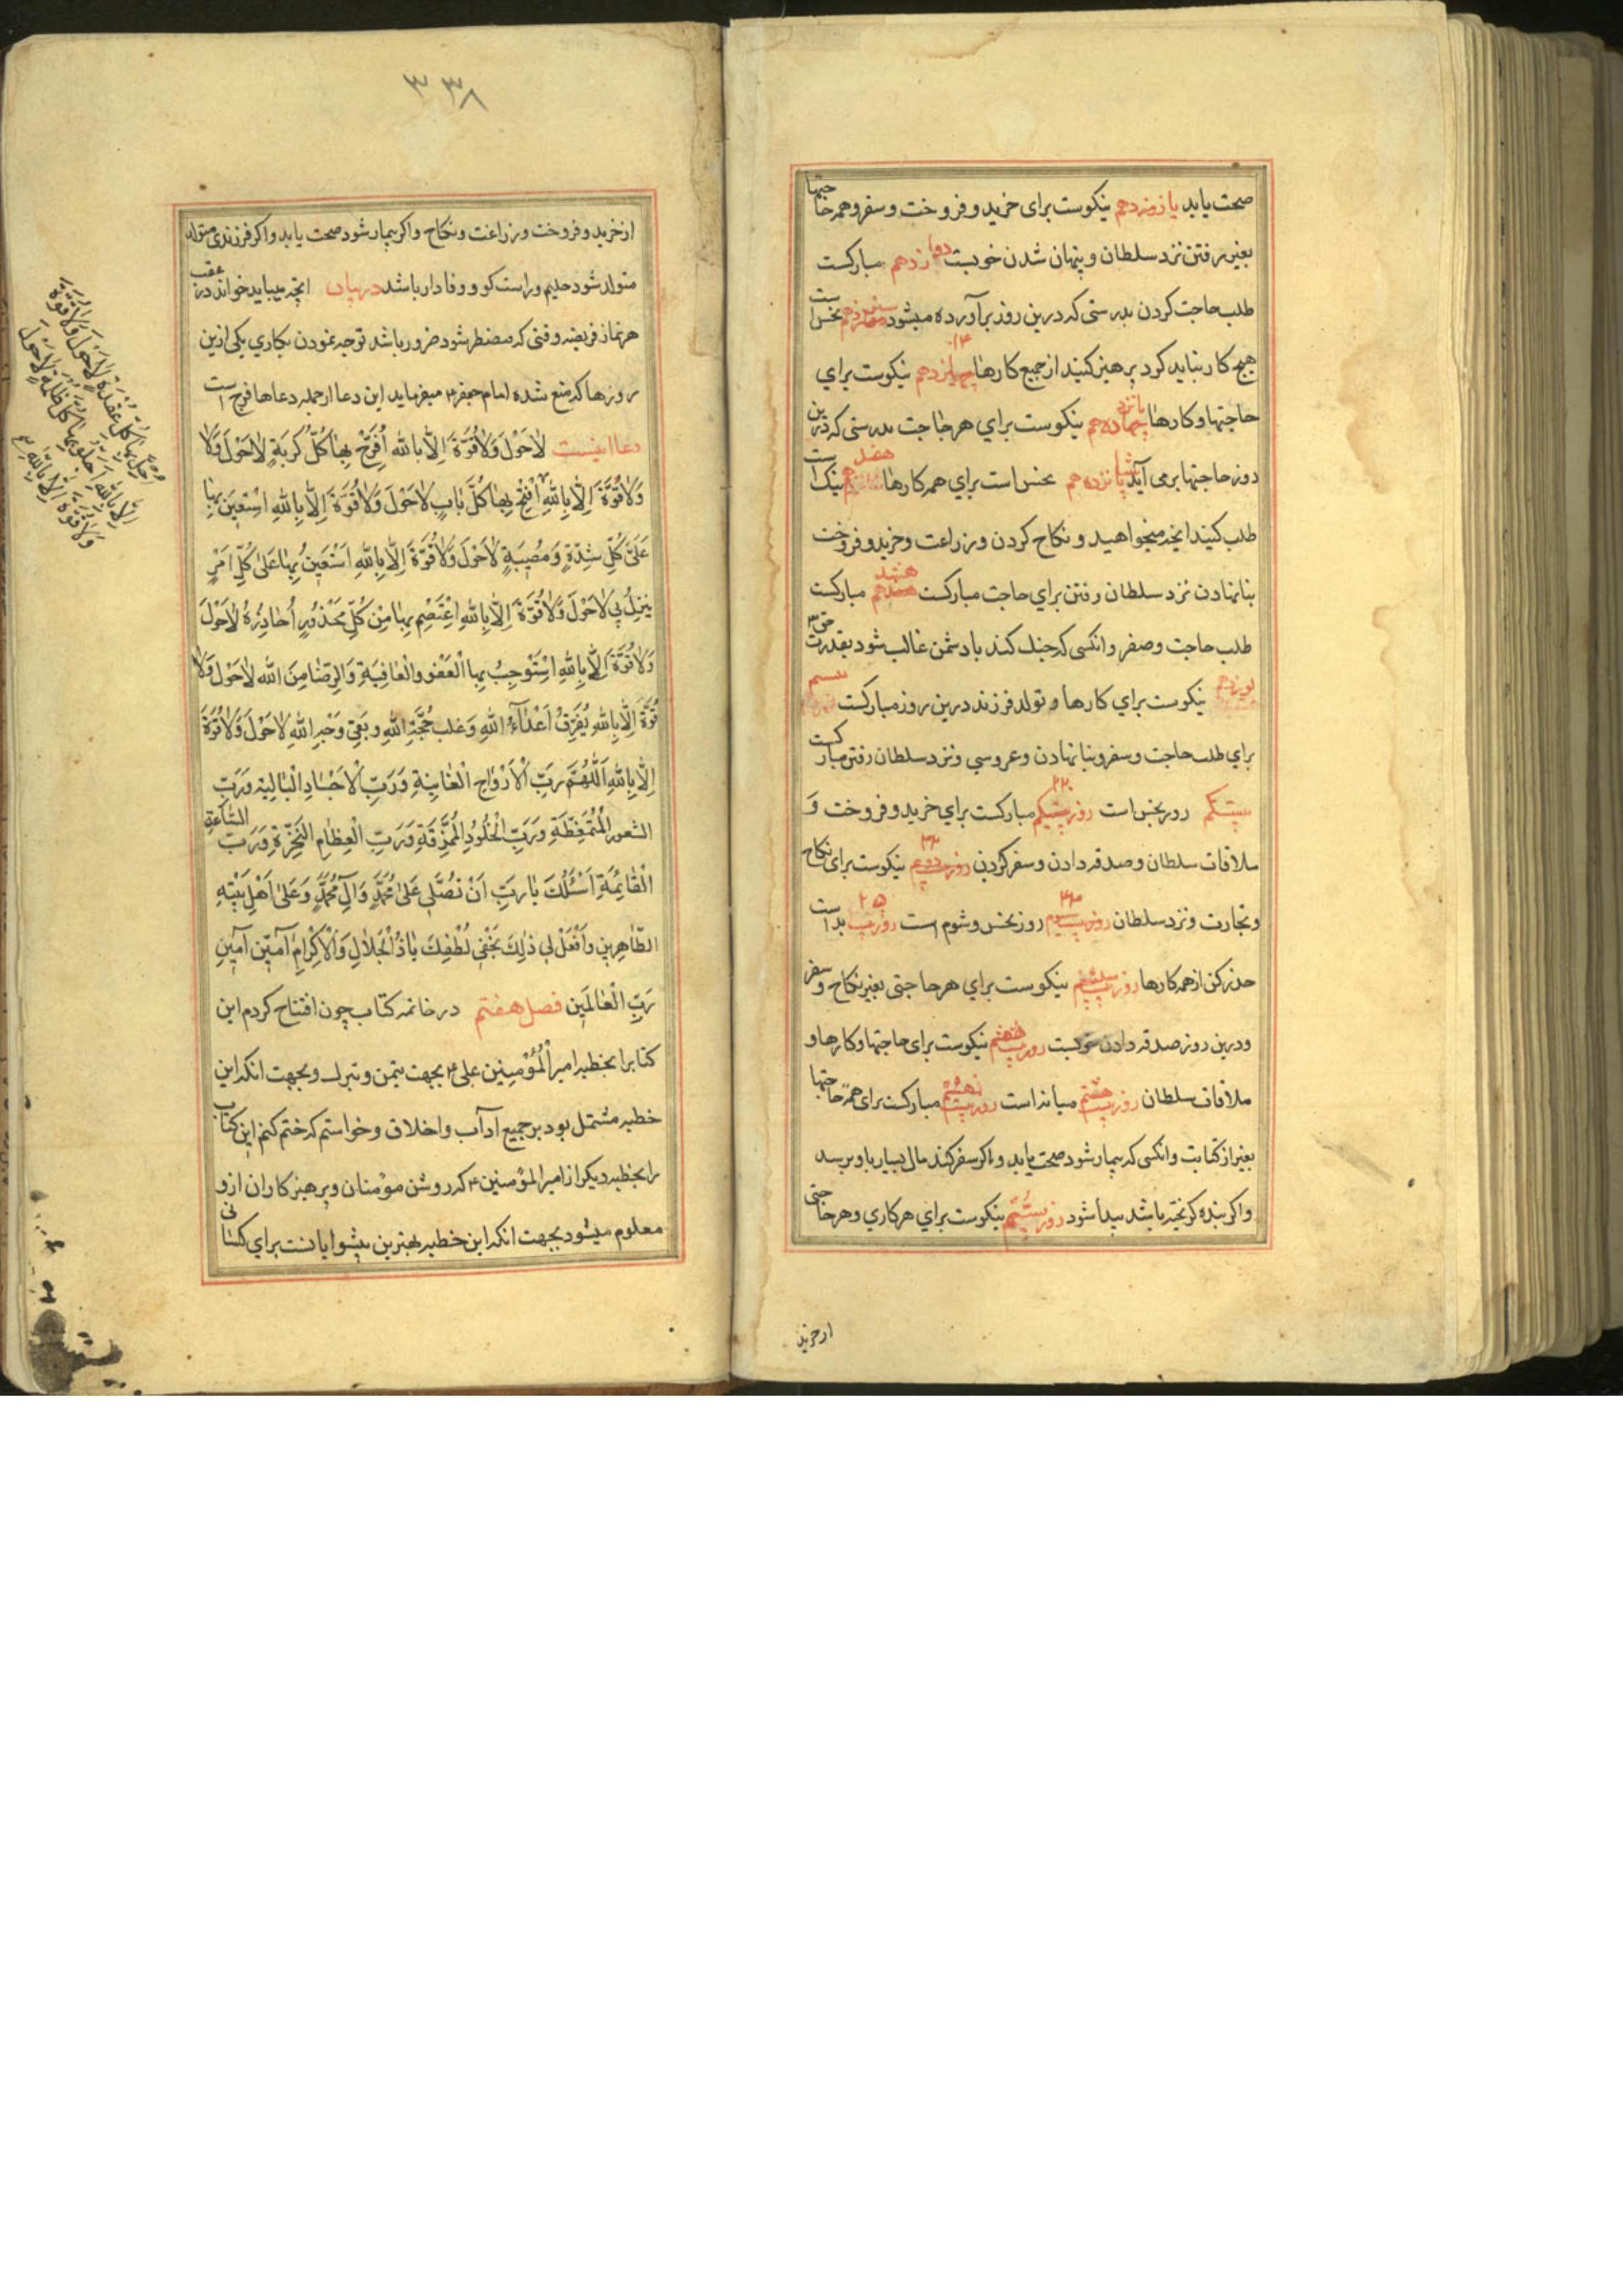 صحت یابد یازدهم نیکوست برای خرید و فروخت و سفر و همه حاجتها
بغیر رفتن نزد سلطان و پنهان شدن خوبست دوازدهم مبارکست
طلب حاجت کردن بدرستی که درین روز برآورده میشود سیزدهم نحس است
هیچ کار نباید کرد پرهیز کنید از جمیع کارها ۱۴ نیکوست برای
حاجتها و کارها پانزدهم نیکوست برای هر حاجت بدرستی که درین
روز حاجتها برمی آید شانزدهم نحس است برای همه کارها هفدهم نیک است
طلب کنید انچه میخواهید و نکاح کردن و زراعت و خرید و فروخت
بنا نهادن نزد سلطان رفتن برای حاجت مبارکست هشدهم مبارکست
طلب حاجت و صفر و انکسی که جنک کند با دشمن غالب شود بقدرت حق
نوزدهم نیکوست برای کارها و تولد فرزند درین روز مبارکست بیستم
برای طلب حاجت و سفر و بنا نهادن و عروسی و نزد سلطان رفتن مبارکست
بیستکم روز نحس است روز ۲۲ مبارکست برای خرید و فروخت و
ملاقات سلطان و صدقه دادن و سفر کردن روز ۲۳ نیکوست برای نکاح
و تجارت و نزد سلطان روز ۲۴ روز نحس و شوم است روز ۲۵ بد است
حذر کن از همه کارها روز نیکوست برای هر حاجتی بغیر نکاح و سفر
و درین روز صدقه دادن روز نیکوست برای حاجتها و کارها و
ملاقات سلطان روز میانه است روز مبارکست برای همه حاجتها
بغیر از کتابت و انکسی که بیمار شود صحت یابد و اکر سفر کند مال بسیار باو برسد
و اکر بنده کریخته باشد پیدا شود روز نیکوست برای هر کاری و هر حاجتی
ازخرید
۳۳۸
از خرید و فروخت و زراعت و نکاح و اکر بیمار شود صحت یابد و اکر فرزندی متولد
متولد شود حلیم و راست کو و وفادار باشد در بیان انچه میباید خواند در عقب
هر نماز فریضه وقتی که مضطر شود ضرور باشد توجه نمودن بکاری یکی ازین
روزها که منع شده امام جعفر ع میفرماید این دعا ازجمله دعاها فرج است
دعا اینست لاٰحَوْلَ وَلاٰقُوَّةَ اِلاّٰ بِاللّٰه اُفَرِّجُ بِهٰا كُلَّ كُرْبَةٍ لاٰحَوْلَ وَلاٰ
وَلاٰقُوَّةَ اِلاّٰ بِاللّٰهِ اَفْتَحُ بِهٰا كُلَّ بٰابٍ لاٰحَوْلَ وَلاٰقُوَّةَ اِلاّٰ بِاللّٰهِ اسْتَعِينُ بِهٰا
عَلىٰ كُلِّ شِدَّةٍ وَمُصِيبَةٍ لاٰحَوْلَ وَلاٰقُوَّةَ اِلاّٰ بِاللّٰهِ اسْتَعِينُ بِهٰا عَلىٰ كُلِّ اَمْرٍ
يَنْزِلُ بِي لاٰحَوْلَ وَلاٰقُوَّةَ اِلاّٰ بِاللّٰهِ اعْتَصِمُ بِهٰا مِنْ كُلِّ مَحْذُورٍ اُحٰاذِرُهُ لاٰحَوْلَ
وَلاٰقُوَّةَ اِلاّٰ بِاللّٰهِ اسْتَوْجِبُ بِهٰا الْعَفْوَ وَالْعٰافِيَةِ وَالرِّضٰا مِنَ اللّٰه لاٰحَوْلَ وَلاٰ
قُوَّةَ اِلاّٰ بِاللّٰهِ يُفَرِّقُ اَعْدٰآءُ اللّٰهِ وَغلب حُجَّة اللّٰهِ وبقي وَجْه اللّٰهِ لاٰحَوْلَ وَلاٰقُوَّةَ
اِلاّٰ بِاللّٰهِ اَللّٰهُمَّ رَبِّ الْاَرْوٰاحِ الْفٰانِيَةِ وَرَبِّ الْاَجْسٰادِ الْبٰالِيَةِ وَرَبِّ
الشعور الْمُتَمَعِّطَةِ وَرَبِّ الْجُلُودِ الْمُمَزَّقَةِ وَرَبِّ الْعِظٰامِ النَّخِرَةِ وَرَبِّ السّٰاعَةِ
الْقٰائِمَةِ اَسْئَلُكَ يٰا رَبِّ اَنْ تُصَلِّي عَلىٰ مُحَمَّدٍ وَآلِ مُحَمَّدٍ وَعَلىٰ اَهْلِ بَيْتِهِ
الطّٰاهِرِينَ وَافْعَلْ لِي ذٰلِكَ بِخَفِيِّ لُطْفِكَ يٰا ذَا الْجَلاٰلِ وَالْاِكْرٰامِ آمين آمين
رَبَّ الْعٰالَمِينَ فصل هفتم در خاتمه کتاب چون افتتاح کردم این
کتابرا بخطبه امیر الْمُؤْمِنِین علی ع بجهت تیمن و تبرک و بجهت انکه این
خطبه مشتمل بود بر جمیع آداب و اخلاق و خواستم که ختم کنم این کتاب
را بخطبه دیکر از امیر المؤمنین ع که روشن مؤمنان و پرهیزکاران ازو
معلوم میشود بجهت انکه این خطبه بهترین پیشوایانست برای کسانی
اَحُلُّ بِهٰا كُلَّ عُقْدَةٍ لاٰحَوْلَ وَلاٰقُوَّةَ
اِلاّٰ بِاللّٰهِ اَجْلُو بِهٰا كُلَّ ظُلْمَةٍ لاٰحَوْلَ
وَلاٰقُوَّةَ اِلاّٰ بِاللّٰهِ